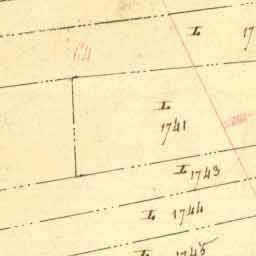 64
1741
1743
1744
1745